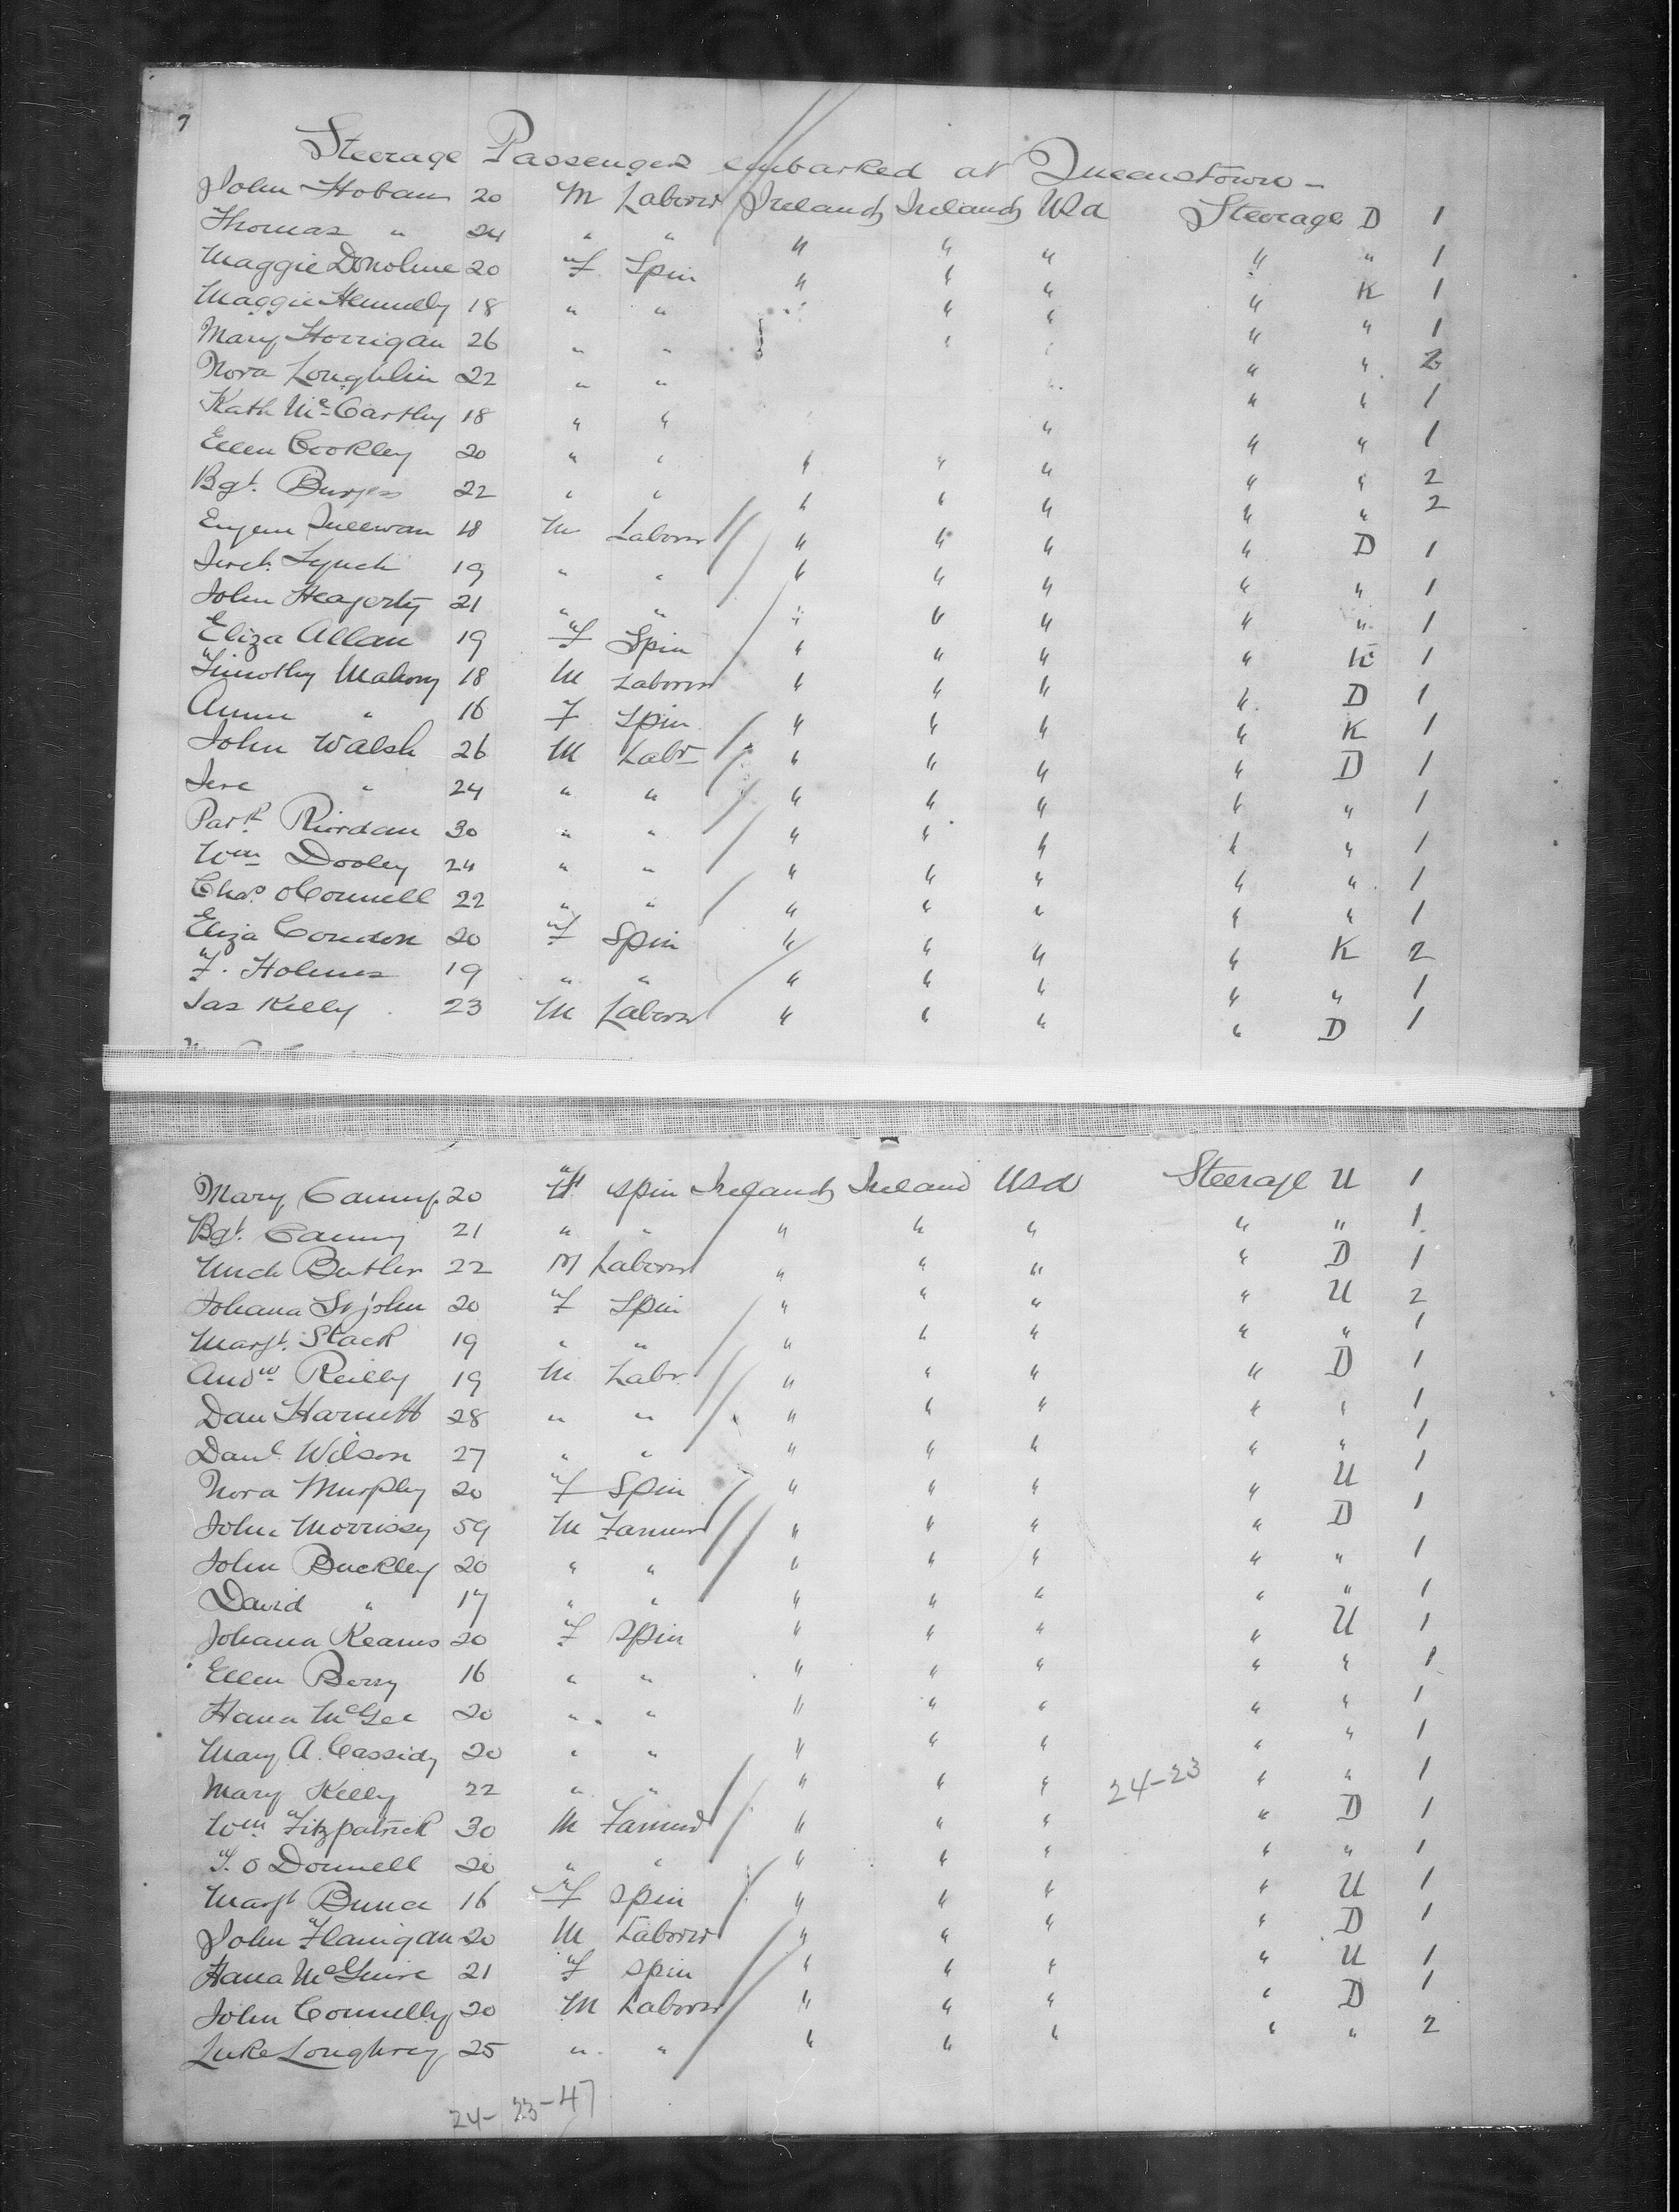 7
Steerage Passengers embarked at Queenstown -
John Hoban 20 M Laborer Ireland Ireland USA Steerage D 1
Thomas " 24 " " " " " " " 1
Maggie Donohue 20 F Spin " " " " K 1
Maggie Hennelly 18 " " " " " " " 1
Mary Horrigan 26 " " " " " " 2
Nora Loughlin 22 " " " " " 1
Kath McCarthy 18 " " " " " 1
Ellen Cookley 20 " " " " " " " 2
Bgt. Burges 22 " " " " " " " 2
Eugene Sullivan 18 M Laborer " " " " D 1
Jerh. Lynch 19 " " " " " " " 1
John Heagerty 21 " " " " " " " 1
Eliza Allan 19 F Spin " " " " K 1
Timothy Mahony 18 M Laborer " " " " D 1
Annie " 16 F Spin " " " " K 1
John Walsh 26 M Labr " " " " D 1
Jere " 24 " " " " " " " 1
Patk Riordan 30 " " " " " " " 1
Wm Dooley 24 " " " " " " " 1
Chas. OConnell 22 " " " " " " " 1
Eliza Condon 20 F Spin " " " " K 2
F. Holmes 19 " " " " " " " 1
Jas Kelly 23 M Laborer " " " " D 1
Mary Canny 20 F spin Ireland Ireland USA Steerage U 1
Bgt. Canny 21 " " " " " " " 1
Mich Butler 22 M Laborer " " " " D 1
Johana St john 20 F Spin " " " " U 2
Margt. Stack 19 " " " " " " " 1
Andw Reilly 19 M Labr. " " " " D 1
Dan Harnett 28 " " " " " " " 1
Danl Wilson 27 " " " " " " " 1
Nora Murphy 20 F Spin " " " " U 1
John Morrissy 59 M Farmer " " " " D 1
John Buckley 20 " " " " " " " 1
David " 17 " " " " " " " 1
Johana Kearns 20 F spin " " " " U 1
Ellen Berry 16 " " " " " " " 1
Hana McGee 20 " " " " " " " 1
Mary A. Cassidy 20 " " " " " " " 1
Mary Kelly 22 " " " " " 24-23 " " 1
Wm Fitzpatrick 30 M Farmer " " " " D 1
T. O Donnell 20 " " " " " " " 1
Margt 16 F spin " " " " U 1
John Flanigan 20 M Laborer " " " " D 1
Hana McGuire 21 F spin " " " " U 1
John Connelly 20 M Laborer " " " " D 1
Luke Loughrey 25 " " " " " " " 2
24- 23-47